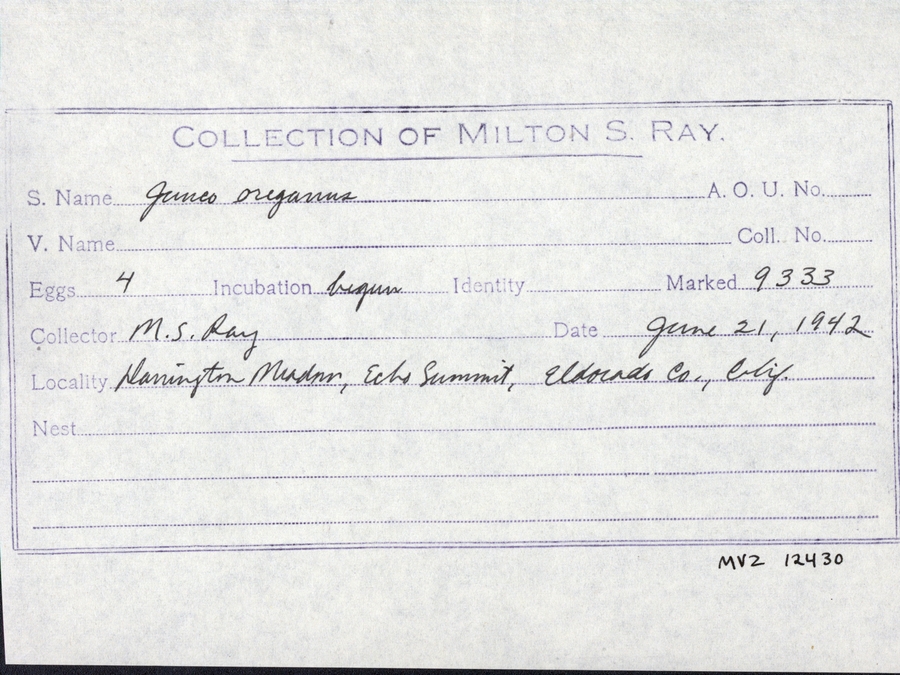 COLLECTION OF MILTON S. RAY.
S. Name Junco oreganus A. O. U. No.
V. Name Coll. No.
Eggs 4 Incubation begun Identity Marked 9333
Collector M.S. Ray Date June 21, 1942
Locality Harrington Meadow, Echo Summit, Eldorado Co., Calif.
Nest
MVZ 12430